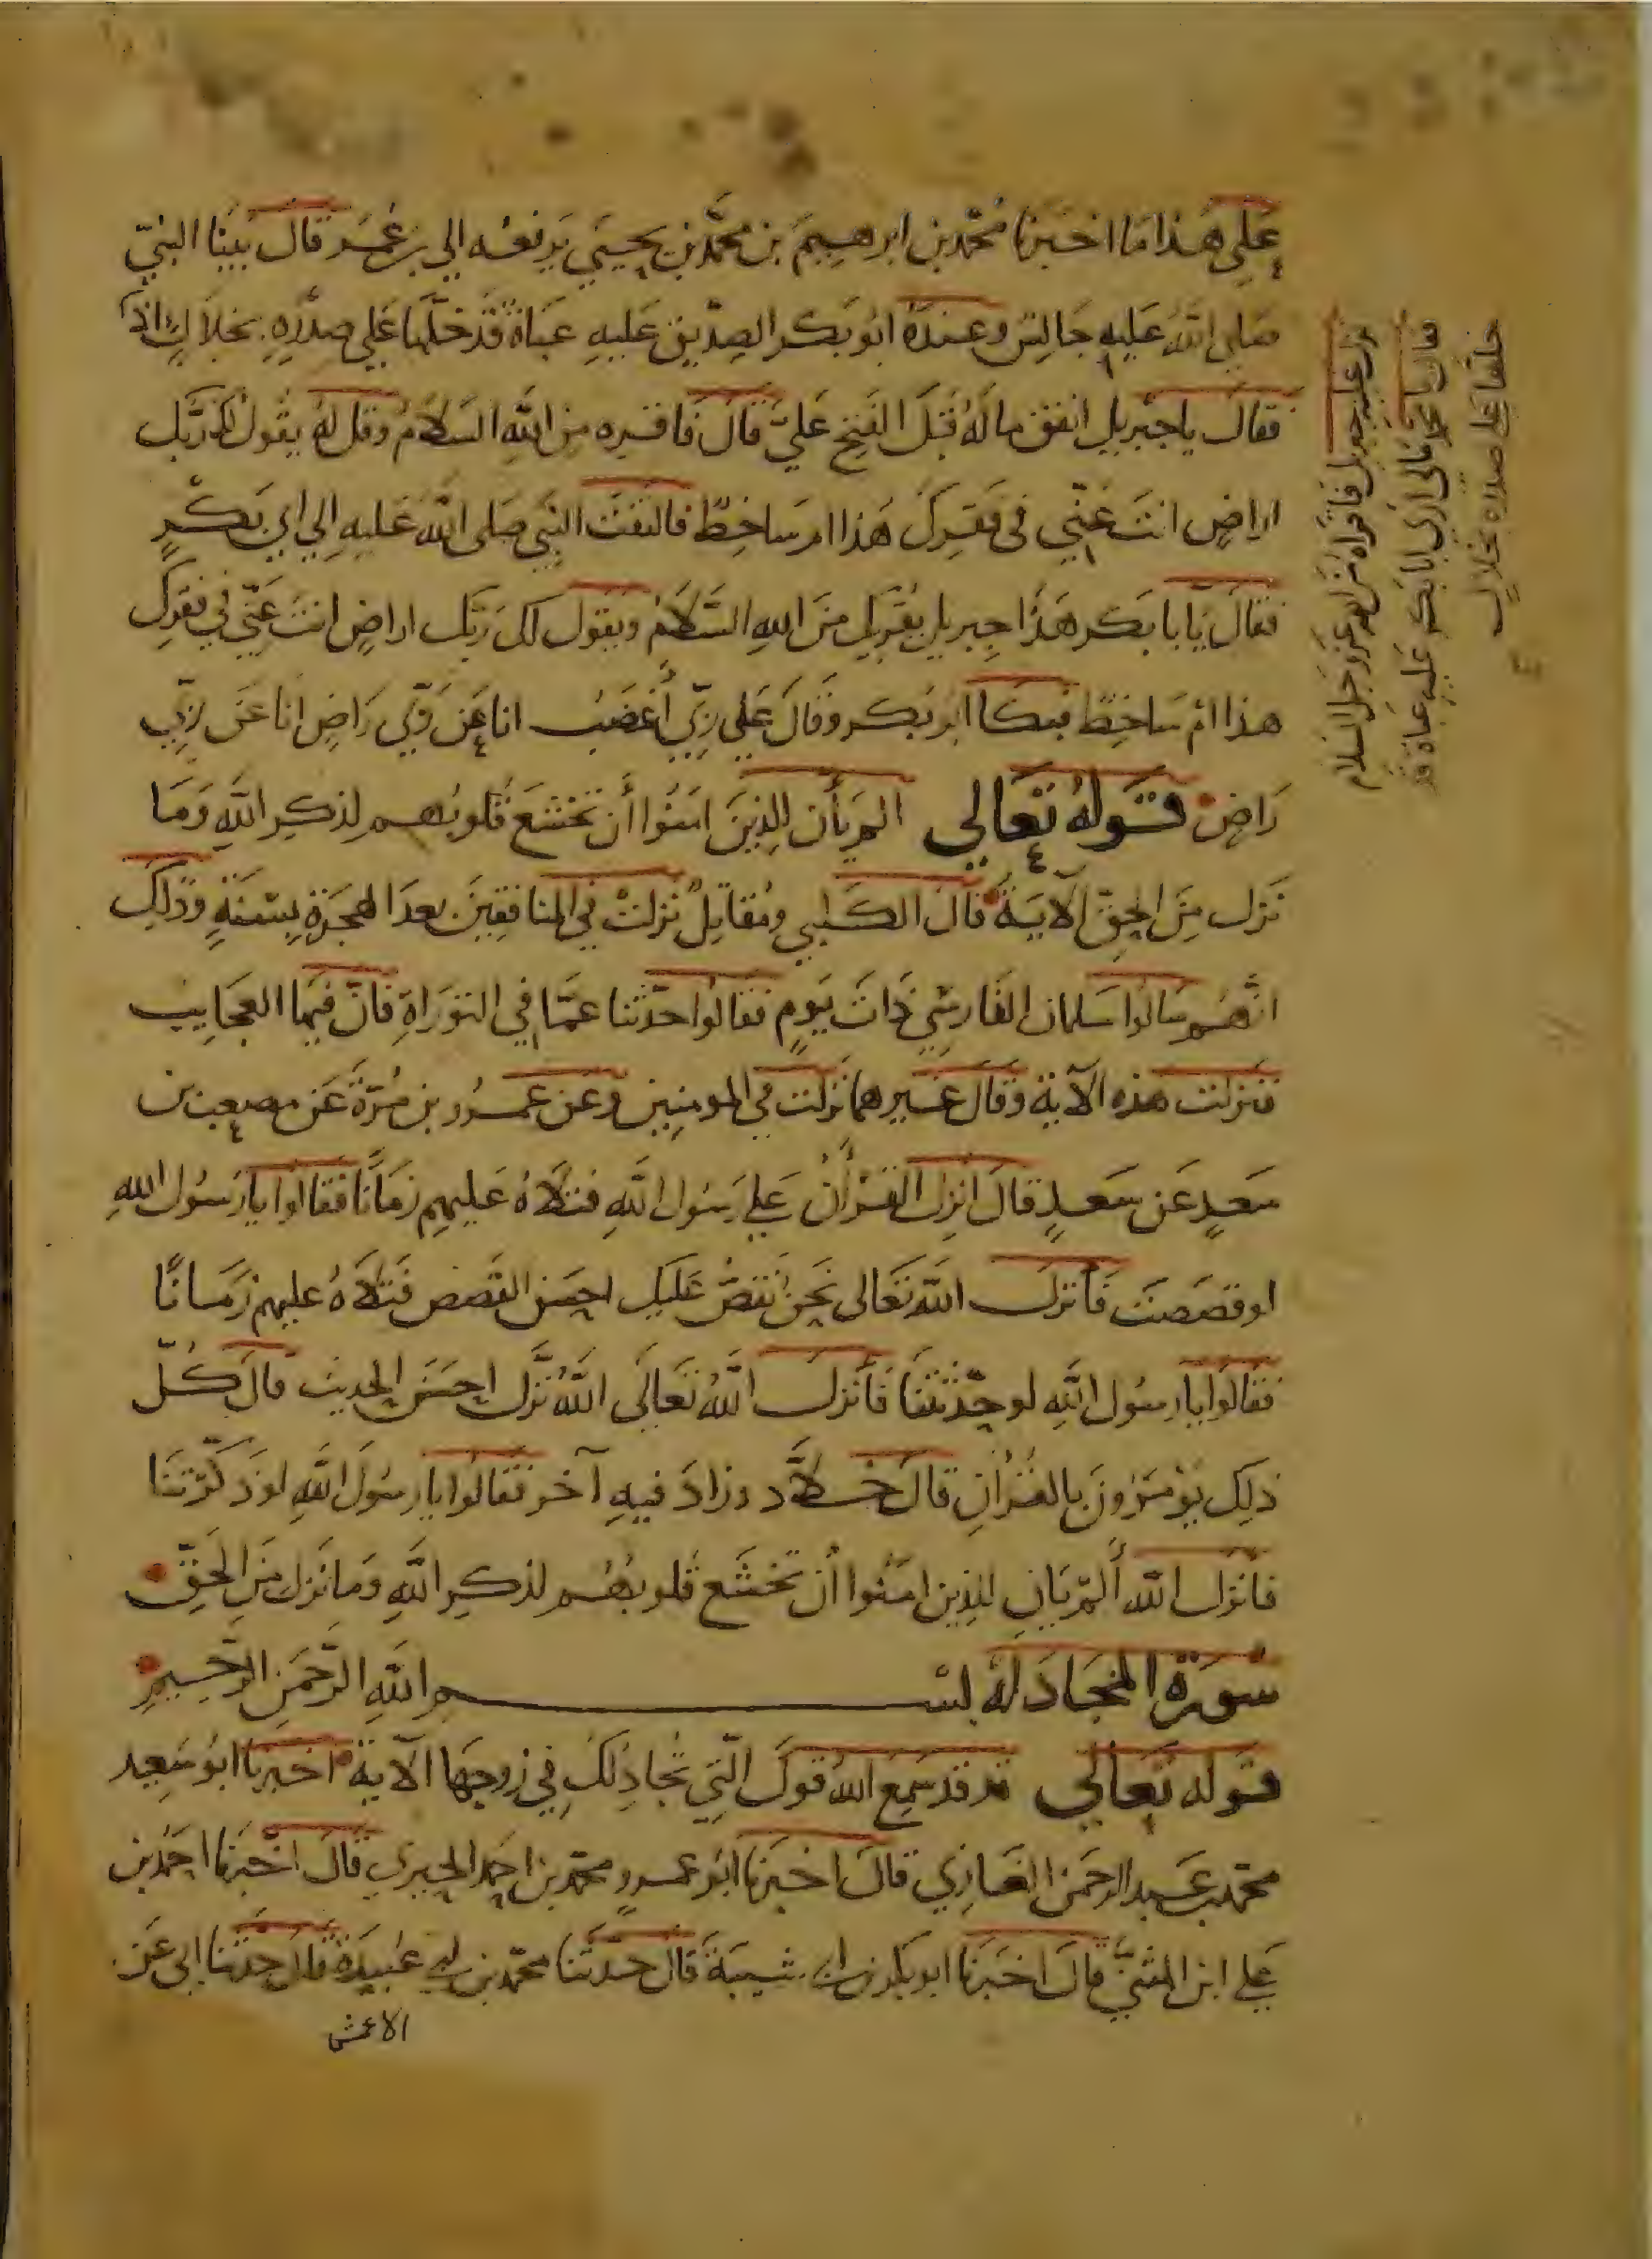 علي هذا ما اخبرنا محمد بن ابرهيم بن محمد بن يحيي يرفعه الي بن عمر قال بينا النبيّ
صلي الله عليه جالس وعنده ابو بكر الصديق عليه عباة قد خلّها علي صدره بخلال اذ
فقال يا جبريل انفق ماله قبل الفتح عليّ قال فاقره من الله السلام وقل له يقول لك ربّك
اراضٍ انت عنّي في فقرك هذا ام ساخطٌ فالتفت النبي صلى الله عليه الي ابي بكرٍ
فقال يّا با بكر هذا جبريل يقريك من الله السّلام ويقول لك ربّك اراضٍ انت عنّي في فقرك
هذا ام ساخطٌ فبكا ابو بكر وقال علي ربّي أغضب انا عن ربّي راضٍ انا عن ربّي
راضٍ قوله تعالي الم يأن للذين امنوا أن تخشع قلوبهم لذكر الله وما
نزل من الحق الآية قال الكلبي ومقاتلٌ نزلت في المنافقين بعد الهجرة بسنةٍ وذلك
انّهم سالوا سلمان الفارسي ذات يومٍ فقالوا حدّثنا عمّا في التوراة فانّ فيها العجايب
فنزلت هذه الآية وقال غيرهما نزلت في المومنين وعن عمرو بن مرّة عن مصعب بن
سعدٍ عن سعدٍ قال انزل القرأن علي رسول الله فتلاه عليهم زمانًا فقالوا يا رسول الله
لو قصصت فأنزل الله تعالى نحن نقصّ عليك احسن القصص فتلاه عليهم زمانًا
فقالوا يا رسول الله لو حدّثتنا فأنزل اللّه تعالى اللّه نزّل احسن الحديث قال كلّ
ذلك يؤمرون بالقرأن قال خلّاد وزاد فيه آخر فقالوا يا رسول الله لو ذكّرتنا
فانزل اللّه ألم يان للذين امنوا أن تخشع قلوبهم لذكر الله وما نزل من الحق
سورة المجادلة بسم الله الرّحمن الرّحيم
قوله تعالي قد سمع الله قول الّتي تجادلك في زوجها الآية اخبرنا ابو سعيد
محمد بن عبد الرحمن الغازي قال اخبرنا ابو عمرو محمّد بن احمد الحيري قال اخبرنا احمد بن
علي ابن المثنّي قال اخبرنا ابو بكر بن ابي شيبة قال حدّثنا محمّد بن ابي عبيدة قال حدّثنا ابي عن
الاعمش
نزل عليه جبريل فاقراه من الله عز وجل السلام
فقال يا محمد مالي اري ابا بكر عليه عباة قد
خلّها علي صدره بخلالٍ